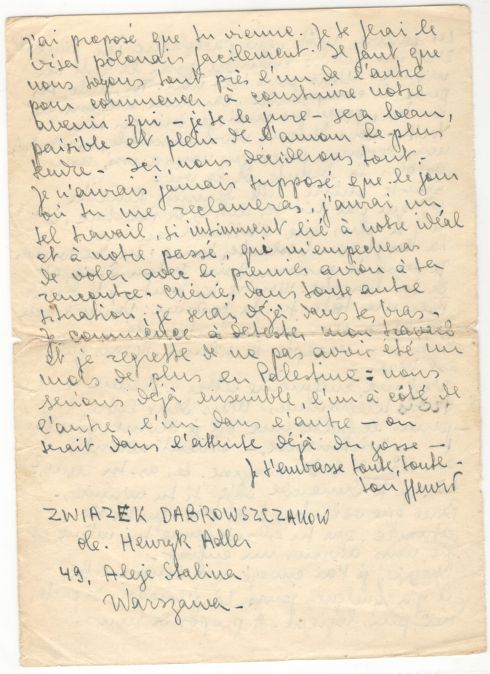 j'ai proposé que tu vienne. Je te ferai le
visa polonais facilement. Il faut que
nous soyons tout près l'un de l'autre
pour commencer à construire notre
avenir qui – je te le jure – sera beau,
paisible et plein de l'amour le plus
tendre. Ici, nous déciderons tout.
Je n'aurais jamais supposé que le jour
où tu me réclameras, j'aurai un
tel travail, si intimment lié à notre idéal
et à notre passé, qui m'empechera
de voler avec le premier avion à ta
rencontre. Chérie, dans toute autre
situation, je serai déjà dans tes bras.
Je commence à detester mon travail
et je regrette de ne pas avoir été un
mois de plus en Palestine = nous
serions déjà ensemble, l'un à côté de
l'autre, l'un dans l'autre – on
serait dans l'attente déjà du gosse –
Je t'embrasse toute, toute –
ton Henri
ZWIAZEK DABROWSZCZAKOW
dle. Henryk Adler
49, Aleje Stalina
Warszawa –